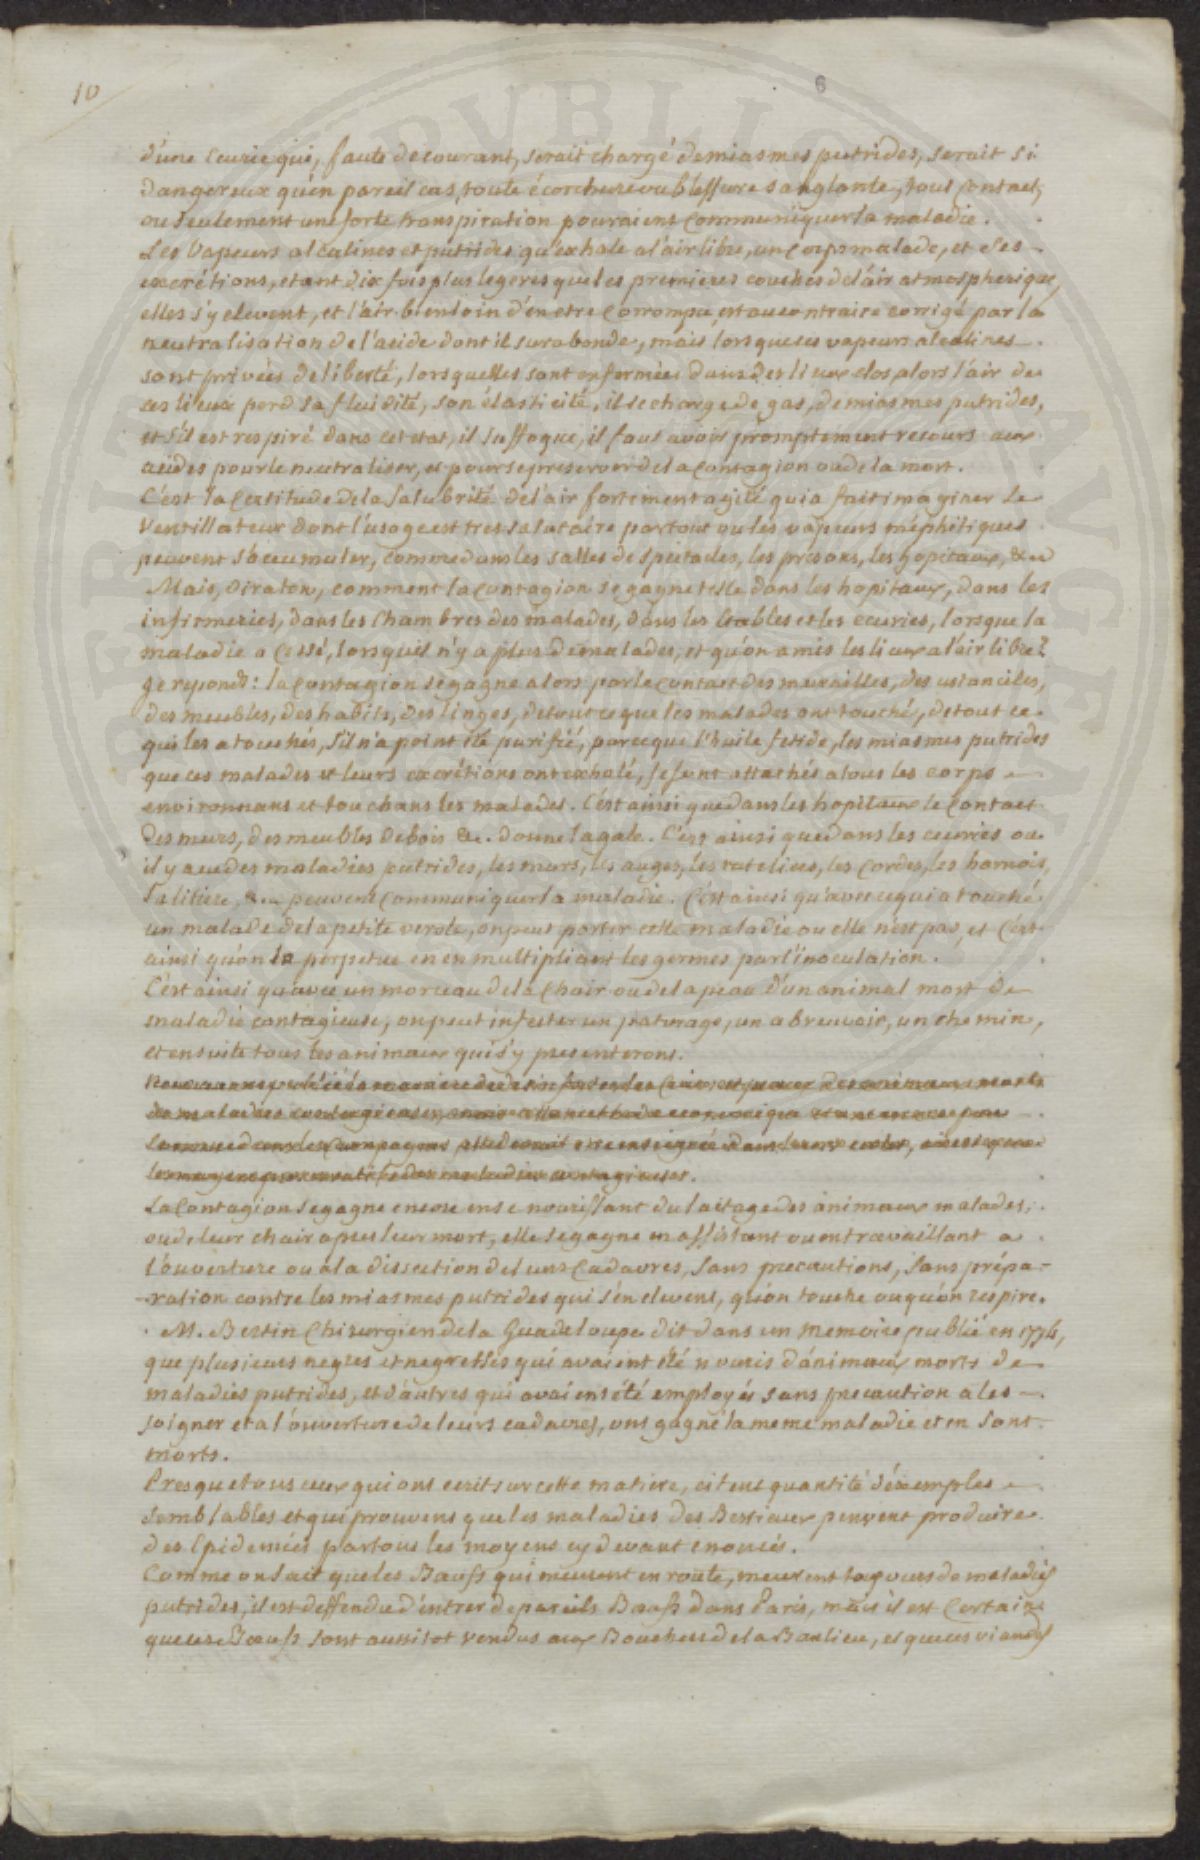 10
6
d'une Ecurie qui, faute de courant, serait chargé de miasmes putrides, serait si
dangereux qu'en pareil cas, toute écorchure ou blessure sanglante, tout contact,
ou seulement une forte transpiration pouraient communiquer la maladie.
Les Vapeurs alcalines et putrides qu'exhale a l'air libre, un corps malade, et ses
excrétions, etant dix fois plus legeres que les premieres couches de l'air atmospherique,
elles s'y elevent, et l'air bien loin d'en etre corrompu, est au contraire corrigé par la
neutralisation de l'acide dont il surabonde, mais lorsque ses vapeurs alcalines
sont privées de liberté, lorsqu'elles sont enfermées dans des lieux clos alors l'air de
ces lieux perd sa fluidité, son élasticité, il se charge de gas, de miasmes putrides,
et s'il est respiré dans cet etat, il suffoque, il faut avoir promptement recours aux
acides pour le neutraliser, et pour se preserver de la contagion ou de la mort.
C'est la Certitude de la salubrité de l'air fortement agité qui a fait imaginer le
Ventillateur dont l'usage est tres salutaire partout ou les vapeurs méphitiques
peuvent s'accumuler, comme dans les salles de spectacles, les prisons, les hopitaux, &a
Mais, dira ton, comment la contagion se gagne telle dans les hopitaux, dans les
infirmeries, dans les Chambres des malades, dans les Etables et les ecuries, lorsque la
maladie a Cessé, lorsqu'il n'y a plus de malades, et qu'on a mis les lieux a l'air libre?
Je reponds: la contagion se gagne alors par le contact des murailles, des ustanciles,
des meubles, des habits, des linges, de tout ce que les malades ont touché, de tout ce
qui les a touchés, s'il n'a point été purifié, parceque l'huile fetide, les miasmes putrides
que ces malades et leurs excrétions ont exhalé, se sont attachés a tous les corps
environnans et touchans les malades. C'est ainsi que dans les hopitaux le contact
des murs, des meubles de bois &c. donne la gale. C'est ainsi que dans les ecuries ou
il y a eu des maladies putrides, les murs, les auges, les rateliers, les cordes, les harnois,
la litiere, &a peuvent communiquer la maladie. C'est ainsi qu'avec ce qui a touché
un malade de la petite verole, on peut porter cette maladie ou elle n'est pas, et c'est
ainsi qu'on la perpetue en en multipliant les germes par l'inoculation.
C'est ainsi qu'avec un morceau de la Chair ou de la peau d'un animal mort de
maladie contagieuse, on peut infecter un paturage, un abreuvoir, un chemin,
et ensuite tous les animaux qui s'y presenteront.
la maniere de desinfecter les Cuirs et peaux des animaux morts
de maladies contagieuses,
dans les campagnes elle devrait etre enseignée dans
les moyens preservatifs des maladies contagieuses.
La Contagion se gagne encore en se nourissant du laitage des animaux malades,
ou de leur chair apres leur mort, elle se gagne en assistant ou en travaillant a
l'ouverture ou a la dissection de leurs Cadavres, sans precautions, sans prépa-
-ration contre les miasmes putrides qui s'en elevent, qu'on touche ou qu'on respire.
M. Bertin Chirurgien de la Guadeloupe dit dans un Memoire publié en 1774,
que plusieurs negres et negresses qui avaient été nouris d'animaux morts de
maladies putrides, et d'autres qui avaient été employés sans precaution a les
soigner et a l'ouverture de leurs cadavres, ont gagné la meme maladie et en sont
morts.
Presque tous ceux qui ont ecrit sur cette matiere, citent quantité d'exemples
semblables et qui prouvent que les maladies des Bestiaux peuvent produire
des Epidemies par tous les moyens cy devant enoncés.
Comme on sait que les Bœufs qui meurent en route, meurent toujours de maladies
putrides, il est deffendu d'entrer de pareils Bœufs dans Paris, mais il est certain
que ces Bœufs sont aussitot vendus aux Bouchers de la Banlieu, et que ces viandes